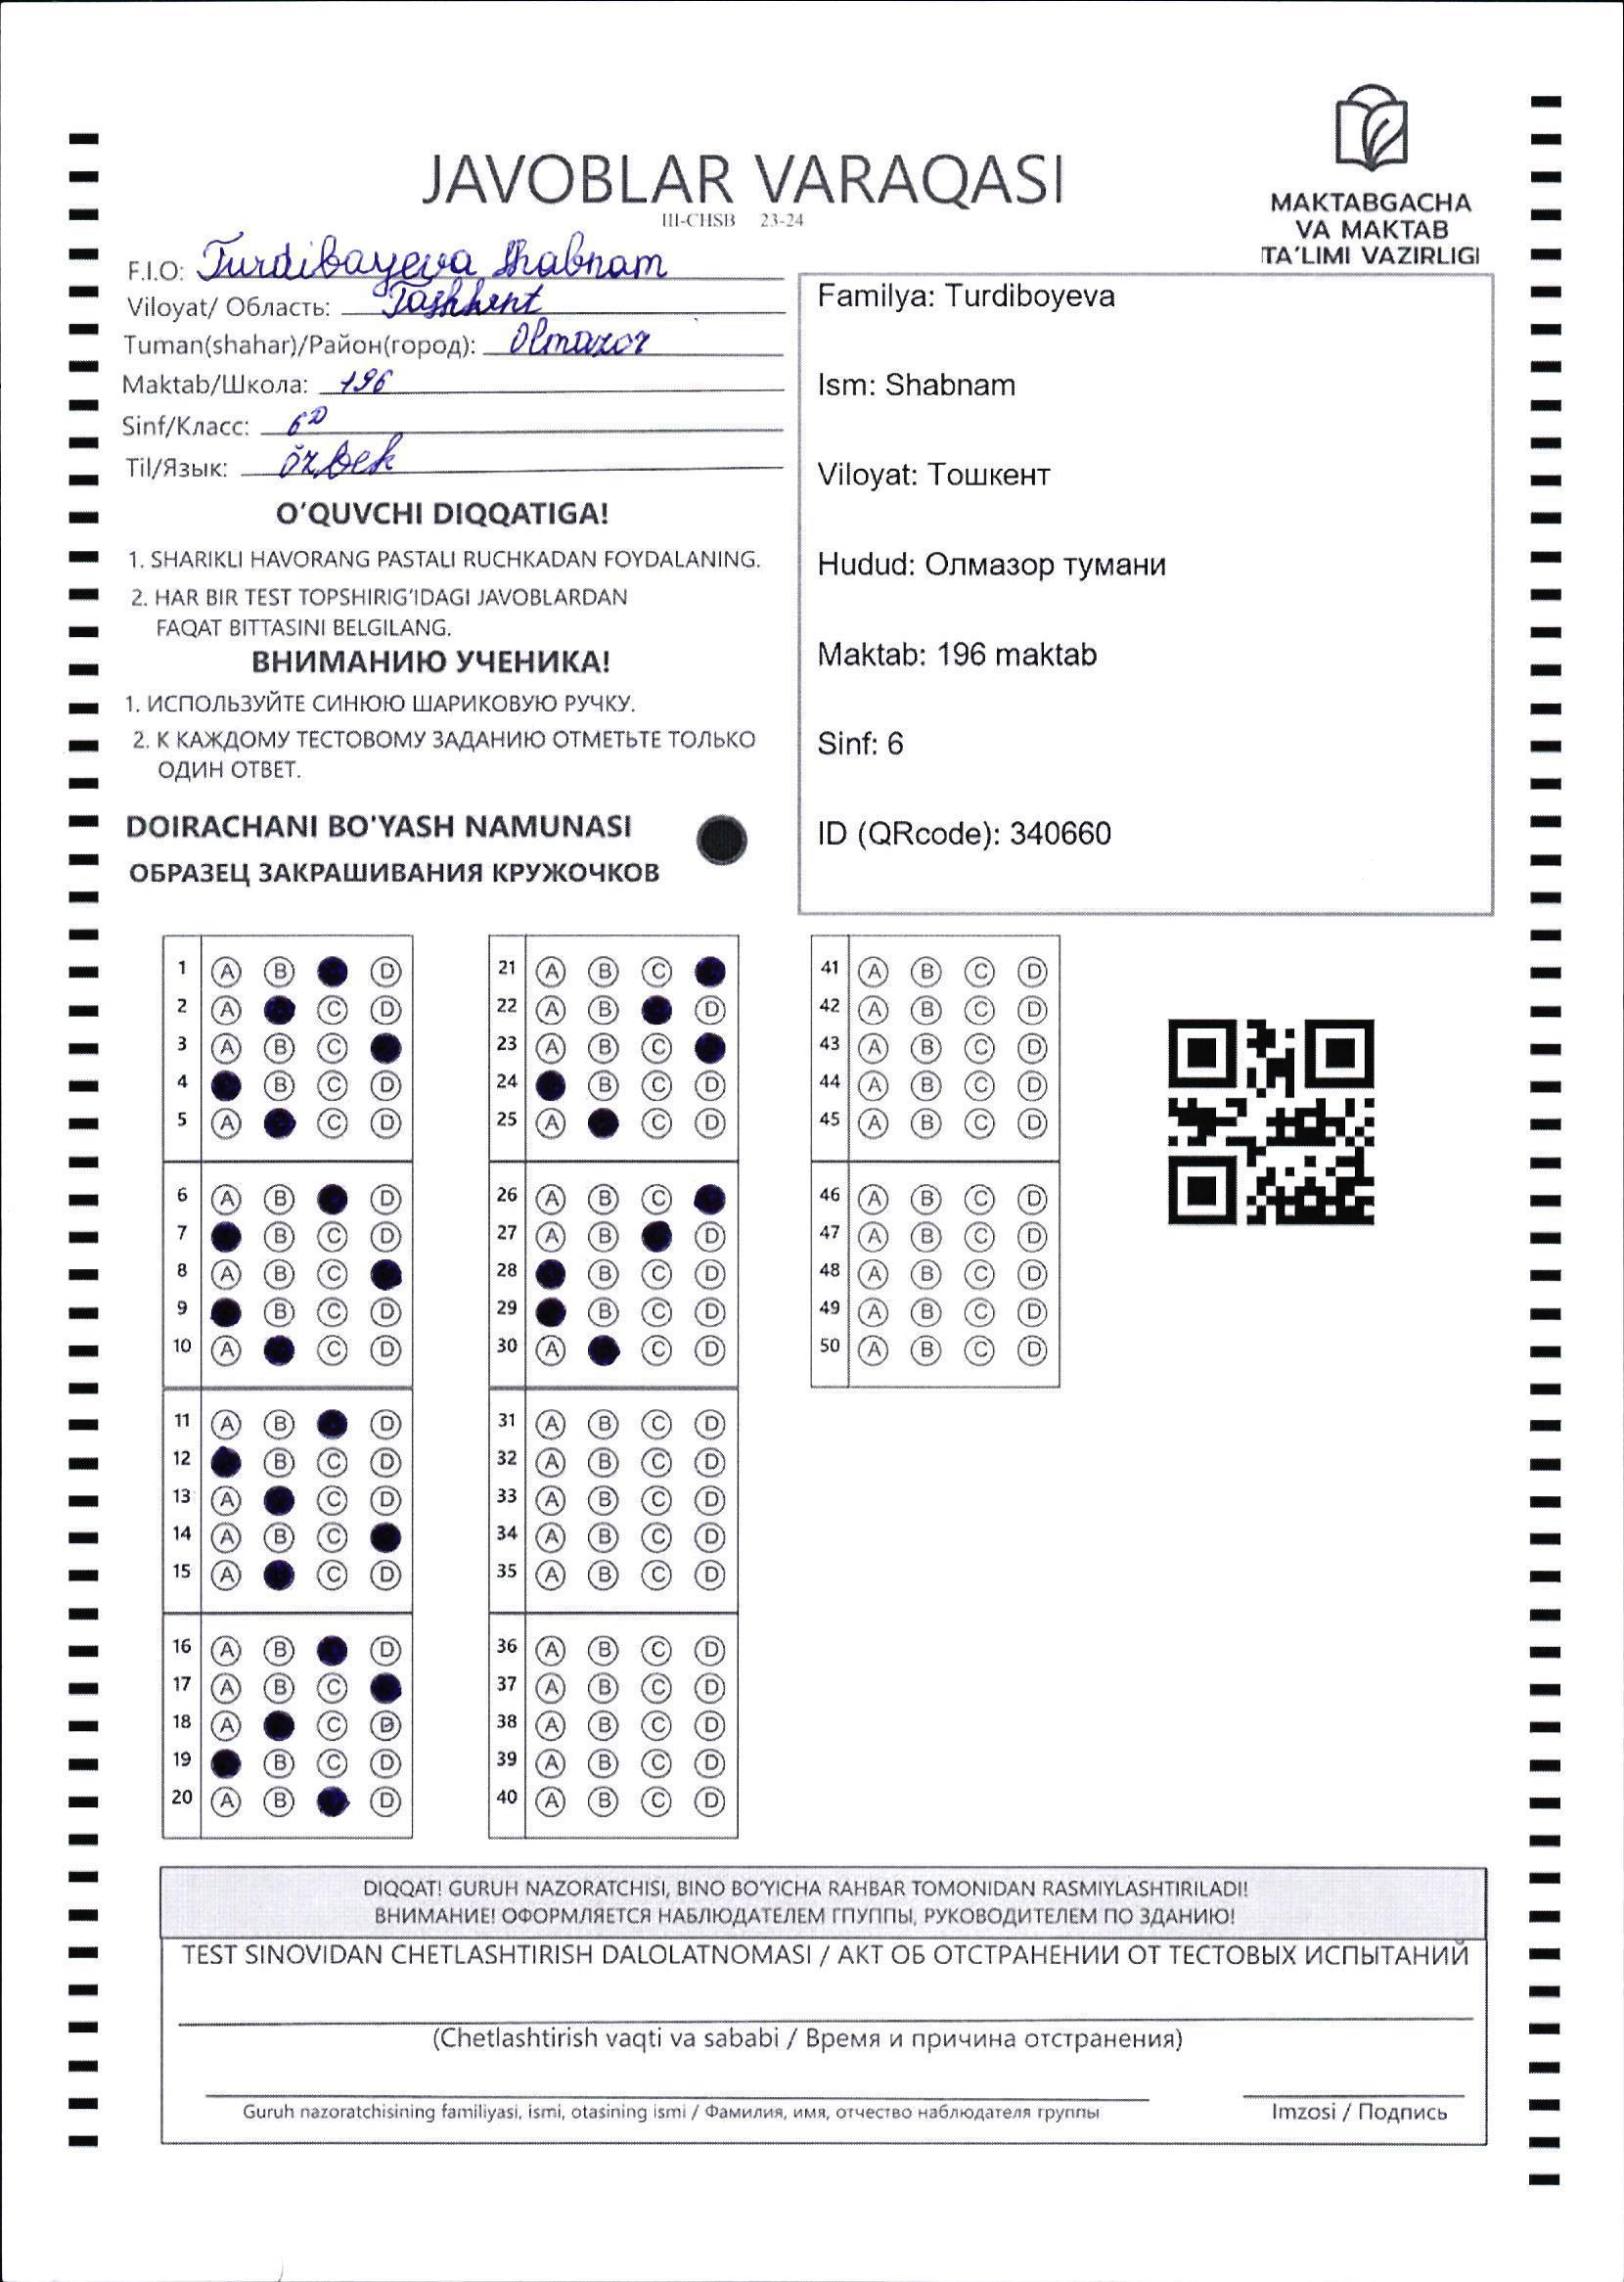 JAVOBLAR VARAQASI
III-CHSB 23-24
MAKTABGACHA
VA MAKTAB
TA'LIMI VAZIRLIGI
F.I.O: Turdibayeva Shabnam
Viloyat/ Область: Tashkent
Tuman(shahar)/Район(город): Olmazor
Maktab/Школа: 196
Sinf/Класс: 6D
Til/Язык: õzbek
O'QUVCHI DIQQATIGA!
1. SHARIKLI HAVORANG PASTALI RUCHKADAN FOYDALANING.
2. HAR BIR TEST TOPSHIRIG'IDAGI JAVOBLARDAN
FAQAT BITTASINI BELGILANG.
ВНИМАНИЮ УЧЕНИКА!
1. ИСПОЛЬЗУЙТЕ СИНЮЮ ШАРИКОВУЮ РУЧКУ.
2. К КАЖДОМУ ТЕСТОВОМУ ЗАДАНИЮ ОТМЕТЬТЕ ТОЛЬКО
ОДИН ОТВЕТ.
DOIRACHANI BO'YASH NAMUNASI
ОБРАЗЕЦ ЗАКРАШИВАНИЯ КРУЖОЧКОВ
Familya: Turdiboyeva
Ism: Shabnam
Viloyat: Тошкент
Hudud: Олмазор тумани
Maktab: 196 maktab
Sinf: 6
ID (QRcode): 340660
1 A B D
2 A C D
3 A B C
4 B C D
5 A C D
6 A B D
7 B C D
8 A B C
9 B C D
10 A C D
11 A B D
12 B C D
13 A C D
14 A B C
15 A C D
16 A B D
17 A B C
18 A C D
19 B C D
20 A B D
21 A B C
22 A B D
23 A B C
24 B C D
25 A C D
26 A B C
27 A B D
28 B C D
29 B C D
30 A C D
31 A B C D
32 A B C D
33 A B C D
34 A B C D
35 A B C D
36 A B C D
37 A B C D
38 A B C D
39 A B C D
40 A B C D
41 A B C D
42 A B C D
43 A B C D
44 A B C D
45 A B C D
46 A B C D
47 A B C D
48 A B C D
49 A B C D
50 A B C D
DIQQAT! GURUH NAZORATCHISI, BINO BO'YICHA RAHBAR TOMONIDAN RASMIYLASHTIRILADI!
ВНИМАНИЕ! ОФОРМЛЯЕТСЯ НАБЛЮДАТЕЛЕМ ГПУППЫ, РУКОВОДИТЕЛЕМ ПО ЗДАНИЮ!
TEST SINOVIDAN CHETLASHTIRISH DALOLATNOMASI / АКТ ОБ ОТСТРАНЕНИИ ОТ ТЕСТОВЫХ ИСПЫТАНИЙ
(Chetlashtirish vaqti va sababi / Время и причина отстранения)
Guruh nazoratchisining familiyasi, ismi, otasining ismi / Фамилия, имя, отчество наблюдателя группы
Imzosi / Подпись